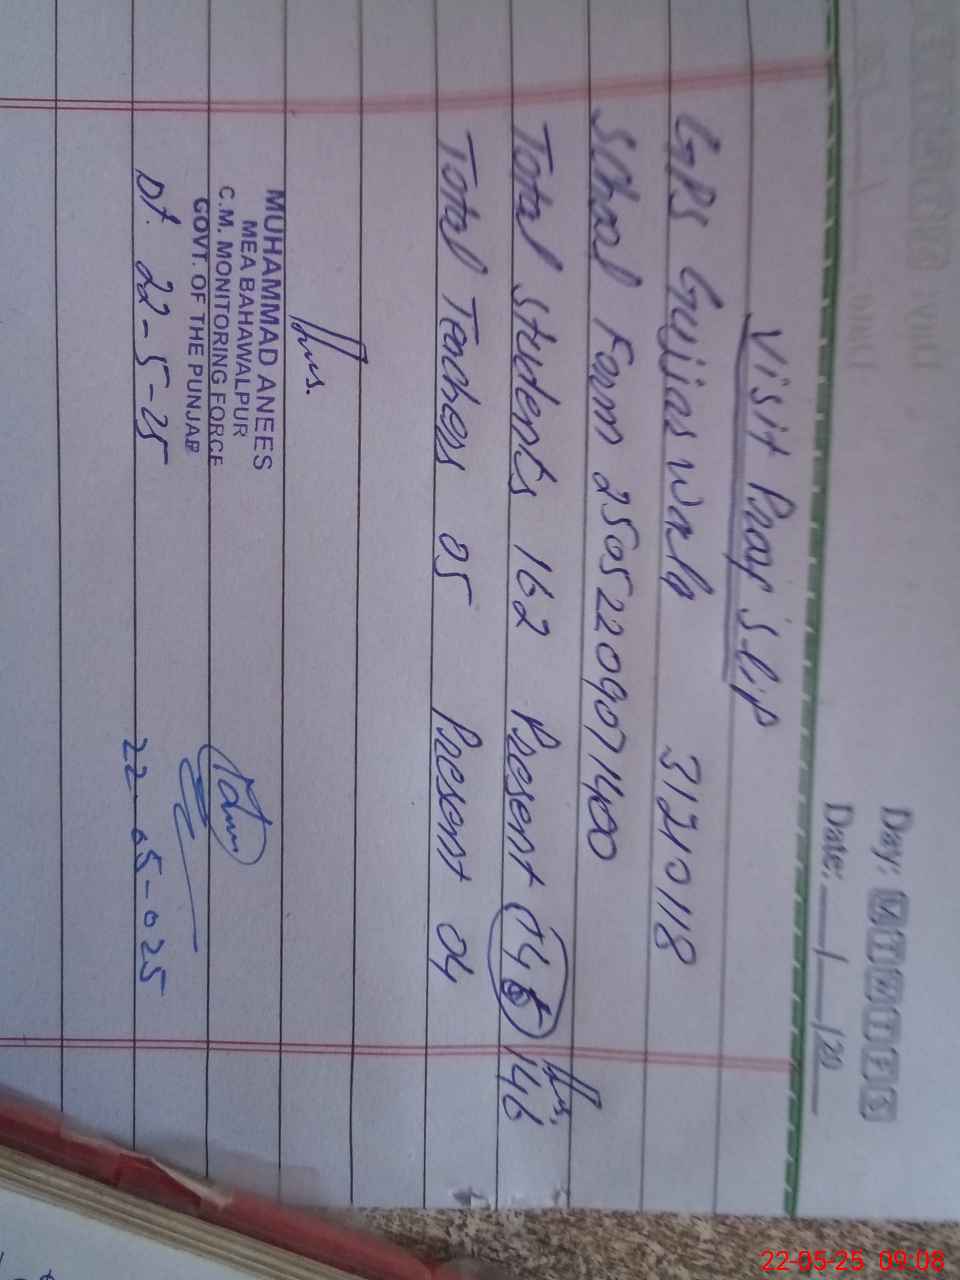 Day: M T W T F S
Date: ___/___/20___
Visit Proof Slip
GPS Gujjas Wala 31210118
School Form 25052209071400
Total Students 162 Present 146 146
Total Teaches 05 Present 04
MUHAMMAD ANEES
MEA BAHAWALPUR
C.M. MONITORING FORCE
GOVT. OF THE PUNJAB
Dt. 22-5-25
22-05-025
22-05-25 09:08